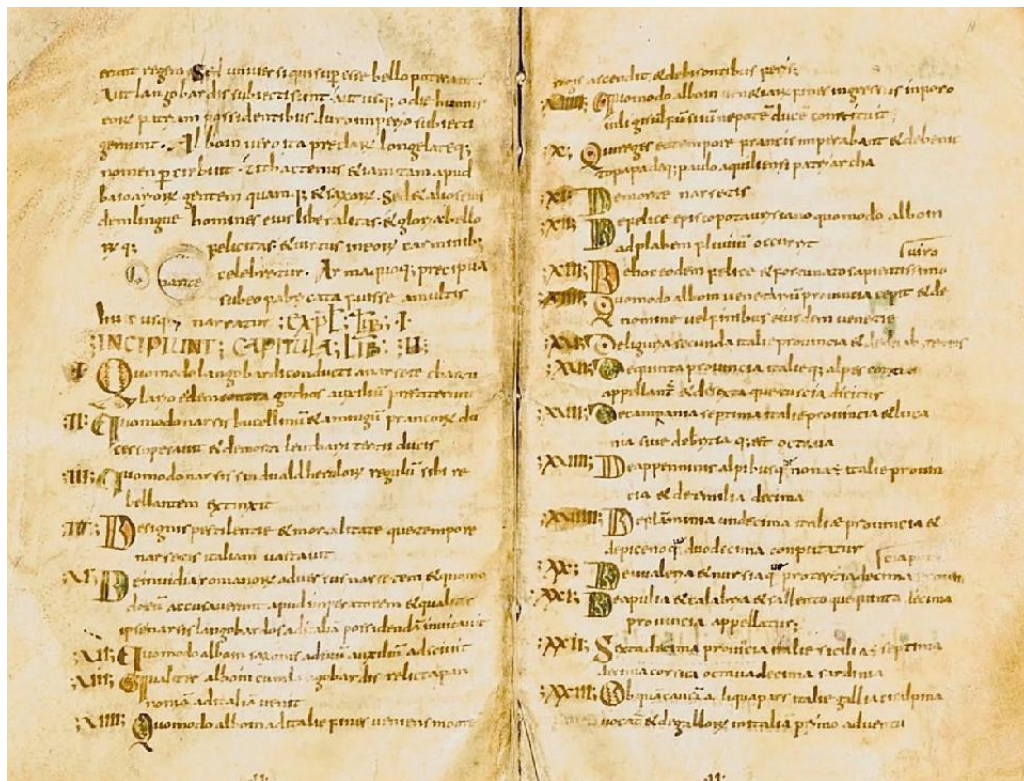 erunt regem Sed universi qui superesse bello poterant
Aut langobardis subiecti sunt aut usq; hodie hunnis
eorum patriam possidentibus duro imperio subiecti
gemunt. Alboin vero ita preclarum longe lateq;
nomen percrebuit. Ut hactenus etiam tam apud
baioariorum gentem quamq; & saxonum. Sed & alios eius
dem lingue homines eius liberalitas & gloria bello
rumq; felicitas & virtus in eorum carminib;
celebretur. Arma quoq; precipua
sub eo fabricata fuisse a multis
huc usq; narratur :EXPL: LIB: I:
:INCIPIUNT: CAPITULA: LIB: II:
I Quomodo langobardi conducti a narsete
contra gothos auxiliū prestiterint
:II: Quomodo narsis buccellinū & amingū francorum du
ces superavit & de morte leuthari tertii ducis
:III: Quomodo narsis sindualdū herolorum regulū sibi re
bellantem extinxit
:IIII: De signis pestilentie & mortalitate que tempore
narsetis italiam vastavit
:V: De invidia romanorum adversus narsetem & quomo
do eū accusaverunt apud imperatorem & qualiter
ipse narsis langobardos ad italiā possidendā invitavit
:VI: Quomodo alboin saxones adiutū auxiliū adscivit
:VII: Qualiter alboin cum langobardis relicta pan
noniā ad italiā venit
:VIII: Quomodo alboin ad italie fines veniens monte
regis ascendit & de bisontibus feris
:VIIII: Quomodo alboin venetiarum fines ingressus in foro
iuli gisulfū suū nepotē ducē constituit
:X: Qui reges eo tempore francis imperabant & de bene
to papa daq; paulo aquiliensi patriarcha
:XI: De morte narsetis
:XII: De felice episcopo tarvisiano quomodo alboin
ad plabem fluviū occurrit
viro
:XIII: De hoc eodem felice & fortunato sapientissimo
:XIIII: Quomodo alboin venetiarū provincia cepit & de
nomine vel finibus eiusdem venetie
:XV: De liguria secunda italie provincia &
:XVI: De quinta provincia italie q; alpes cottie
appellant & de sexta que tuscia dicitur
:XVII: De campania septima italie provincia & luca
nia sive de britia q; est octava
:XVIII: De appenninis alpibusq; nona italie provin
cia & de emilia decima
:XVIIII: De flāminia undecima italiæ provincia &
de piceno q; duodecima conputatur
:XX: De valeria & nursia q; pro tertia decima
:XXI: De apulia & calabria & sallento que quinta decima
provincia appellatur;
:XXII: Sexta decima provincia italie sicilia septima
decima corsica octava decima sardinia
:XXIII: Ob quā causā a liqua pars italie gallia cisalpina
vocat & de gallorum in italia primo adventu